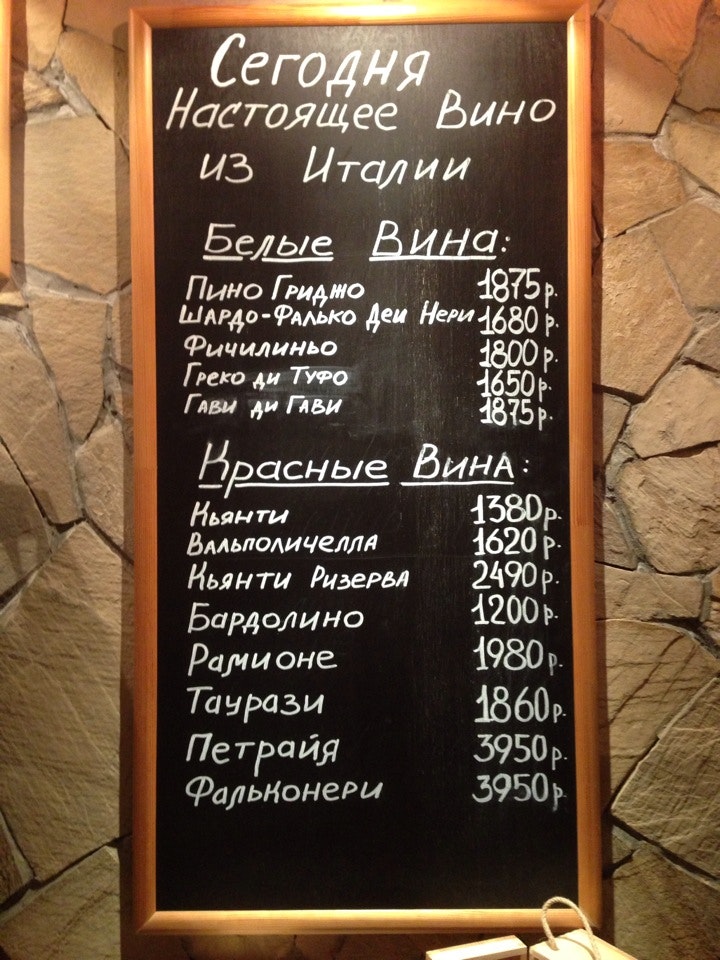 Сегодня
Настоящее Вино
из Италии
Белые Вина:
Пино Гриджо 1875р.
Шардо-Фалько Деи Нери 1680р.
Фичилиньо 1800р.
Греко ди Туфо 1650р.
Гави ди Гави 1875р.
Красные Вина:
Кьянти 1380р.
Вальполичелла 1620р.
Кьянти Ризерва 2490р.
Бардолино 1200р.
Рамионе 1980р.
Таурази 1860р.
Петрайя 3950р.
Фальконери 3950р.